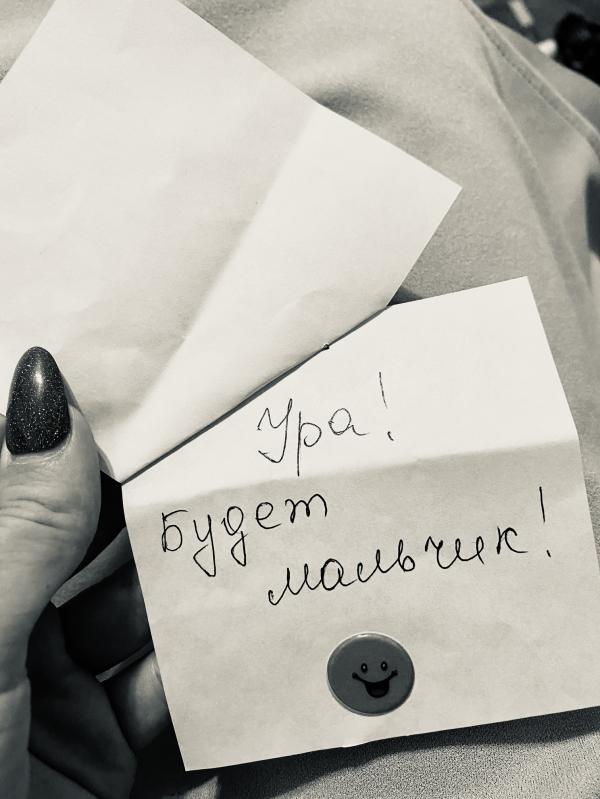 Ура!
Будет
мальчик!